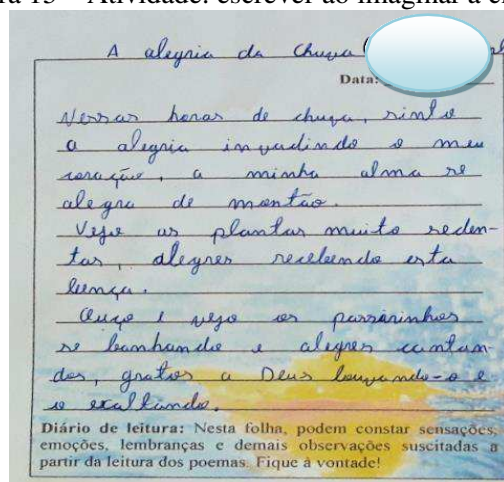 Atividade: escrever ao imaginar a
A alegria da chuva
Data:
Nessas horas de chuva, sinto
a alegria invadindo o meu
coração, a minha alma se
alegra de montão.
Vejo as plantas muito seden-
tas, alegres recebendo esta
bença.
Ouço e vejo os passarinhos
se banhando e alegres cantan-
dos, gratos a Deus louvando-o e
o exaltando.
Diário de leitura: Nesta folha, podem constar sensações,
emoções, lembranças e demais observações suscitadas a
partir da leitura dos poemas. Fique à vontade!